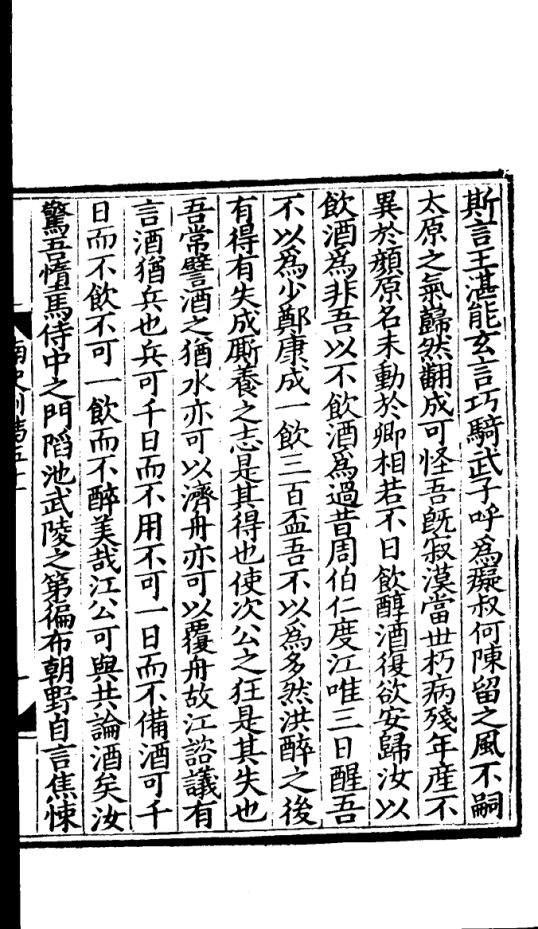 斯言王湛能玄言巧騎武子呼為癡叔何陳留之風不嗣
太原之氣巋然翻成可怪吾既寂漠當世朽病殘年産不
異於顏原名未動於卿相若不日飲醇酒復欲安歸汝以
飲酒為非吾以不飲酒為過昔周伯仁度江唯三日醒吾
不以為少鄭康成一飲三百盃吾不以為多然洪醉之後
有得有失成厮養之志是其得也使次公之狂是其失也
吾常譬酒之猶水亦可以濟舟亦可以覆舟故江諮議有
言酒猶兵也兵可千日而不用不可一日而不備酒可千
日而不飲不可一飲而不醉美哉江公可與共論酒矣汝
驚吾惰馬侍中之門陷池武陵之第徧布朝野自言焦悚